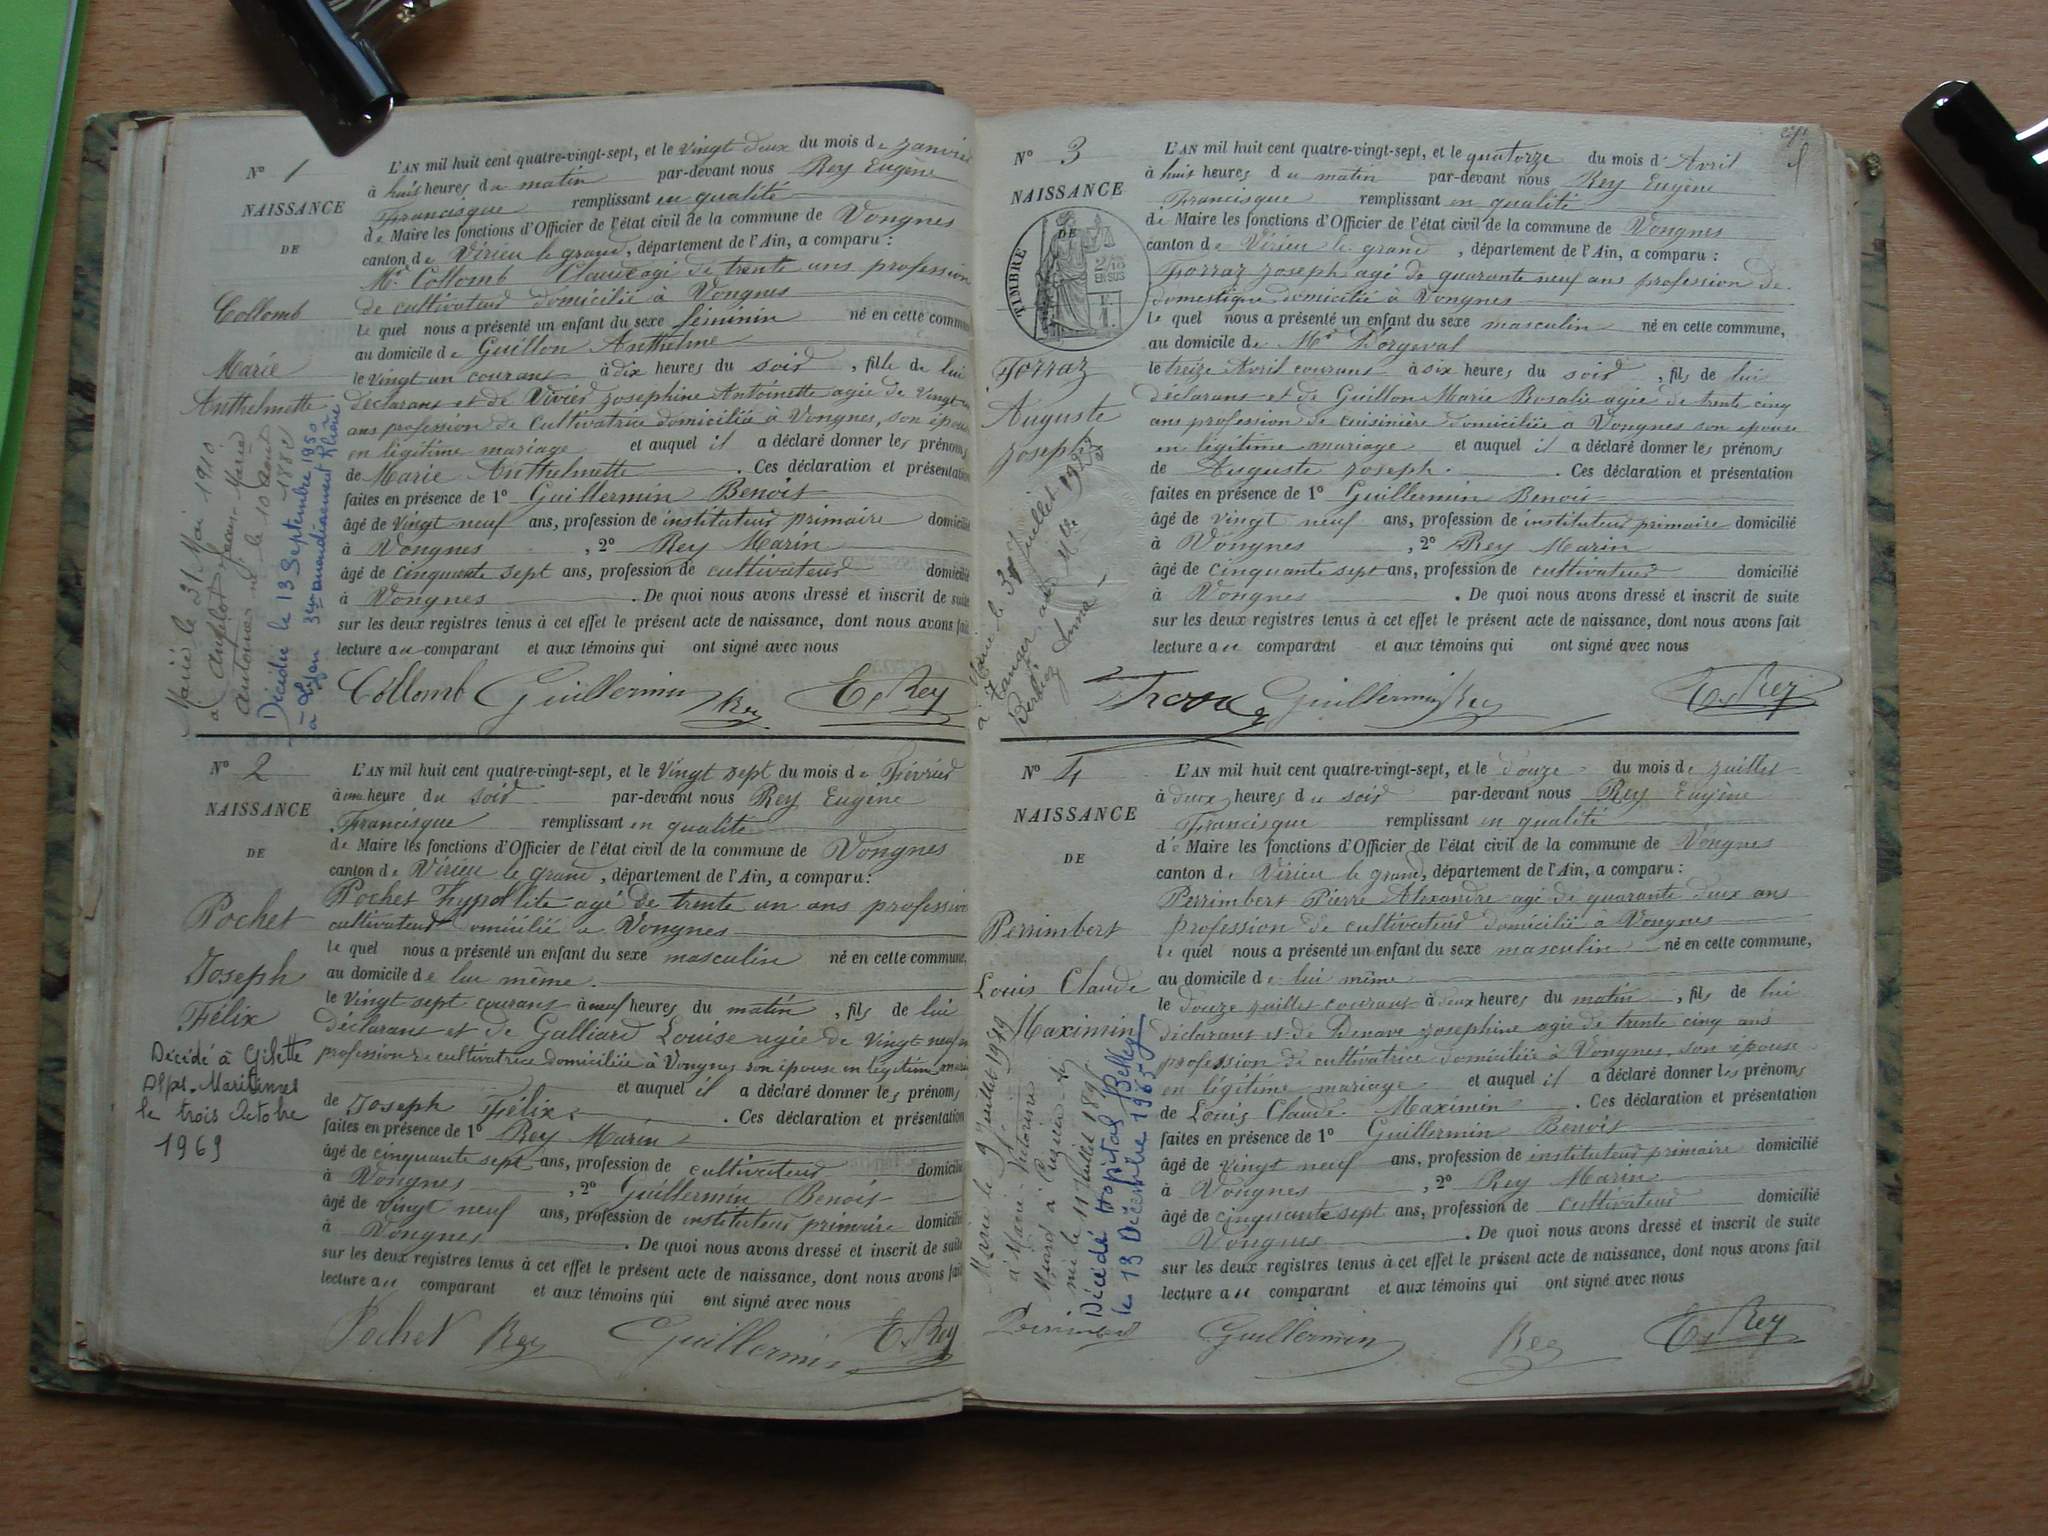 N° 1
NAISSANCE
DE
Collomb
Marie
Anthelmette
Marié le 31 Mai 1910
à Jean-Marie
Antoine né le 10 Août
Décédée le 13 Septembre 1950
à Lyon 3em arrondissement Rhône
L'AN mil huit cent quatre-vingt-sept, et le vingt deux du mois de Janvier
à huit heures du matin par-devant nous Rey Eugène
Francisque remplissant en qualité
de Maire les fonctions d'Officier de l'état civil de la commune de Vongnes
canton de Virieu le grand, département de l'Ain, a comparu :
Mr Collomb Claude agé de trente ans profession
de cultivateur domicilié à Vongnes
Le quel nous a présenté un enfant du sexe féminin né en cette commune
au domicile de Guillon Anthelme
le vingt un courant à dix heures du soir, fille de lui
déclarant et de Vivier Josephine Antoinette agée de vingt
ans profession de Cultivatrice domiciliée à Vongnes, son épouse
en légitime mariage et auquel il a déclaré donner les prénoms
de Marie Anthelmette. Ces déclaration et présentation
faites en présence de 1° Guillermin Benoit
âgé de vingt neuf ans, profession de instituteur primaire domicilié
à Vongnes, 2° Rey Marin
âgé de cinquante sept ans, profession de cultivateur domicilié
à Vongnes. De quoi nous avons dressé et inscrit de suite
sur les deux registres tenus à cet effet le présent acte de naissance, dont nous avons fait
lecture au comparant et aux témoins qui ont signé avec nous
Collomb Guillermin Rey E. Rey
N° 2
NAISSANCE
DE
Pochet
Joseph
Félix
Décédé à Gilette
Alpes-Maritimes
le trois Octobre
1969
L'AN mil huit cent quatre-vingt-sept, et le vingt sept du mois de Février
à une heure du soir par-devant nous Rey Eugène
Francisque remplissant en qualité
de Maire les fonctions d'Officier de l'état civil de la commune de Vongnes
canton de Virieu le grand, département de l'Ain, a comparu :
Pochet Hypolite agé de trente un ans profession
cultivateur domicilié à Vongnes
Le quel nous a présenté un enfant du sexe masculin né en cette commune,
au domicile de lui même.
le vingt sept courant à neuf heures du matin, fils de lui
déclarant et de Galliard Louise agée de vingt neuf
profession de cultivatrice domiciliée à Vongnes son épouse en légitime
et auquel il a déclaré donner les prénoms
de Joseph Félix. Ces déclaration et présentation
faites en présence de 1° Rey Marin
âgé de cinquante sept ans, profession de cultivateur domicilié
à Vongnes, 2° Guillermin Benoit
âgé de vingt neuf ans, profession de instituteur primaire domicilié
à Vongnes. De quoi nous avons dressé et inscrit de suite
sur les deux registres tenus à cet effet le présent acte de naissance, dont nous avons fait
lecture au comparant et aux témoins qui ont signé avec nous
Pochet Rey Guillermin E. Rey
N° 3
NAISSANCE
DE
TIMBRE
2/10
EN SUS
Forraz
Auguste
Joseph
à Tanger avec Mlle
L'AN mil huit cent quatre-vingt-sept, et le quatorze du mois d'Avril
à huit heures du matin par-devant nous Rey Eugène
Francisque remplissant en qualité
de Maire les fonctions d'Officier de l'état civil de la commune de Vongnes
canton de Virieu le grand, département de l'Ain, a comparu :
Forraz Joseph agé de quarante neuf ans profession de
domestique domicilié à Vongnes
Le quel nous a présenté un enfant du sexe masculin né en cette commune,
au domicile de Mr Dorgeval
le treize Avril courant à six heures du soir, fils de lui
déclarant et de Guillon Marie Rosalie agée de trente cinq
ans profession de cuisinière domiciliée à Vongnes son épouse
en légitime mariage et auquel il a déclaré donner les prénoms
de Auguste Joseph. Ces déclaration et présentation
faites en présence de 1° Guillermin Benoit
âgé de vingt neuf ans, profession de instituteur primaire domicilié
à Vongnes, 2° Rey Marin
âgé de cinquante sept ans, profession de cultivateur domicilié
à Vongnes. De quoi nous avons dressé et inscrit de suite
sur les deux registres tenus à cet effet le présent acte de naissance, dont nous avons fait
lecture au comparant et aux témoins qui ont signé avec nous
Guillermin Rey E. Rey
N° 4
NAISSANCE
DE
Perrimbert
Louis Claude
Maximin
Marié le 9 Juillet 1919
à Marie Victorine
né le 11 Juillet 1896
Décédé Hopital Belley
le 13 Décembre 1965
L'AN mil huit cent quatre-vingt-sept, et le douze du mois de Juillet
à deux heures du soir par-devant nous Rey Eugène
Francisque remplissant en qualité
de Maire les fonctions d'Officier de l'état civil de la commune de Vongnes
canton de Virieu le grand, département de l'Ain, a comparu :
Perrimbert Pierre Alexandre agé de quarante deux ans
profession de cultivateur domicilié à Vongnes
Le quel nous a présenté un enfant du sexe masculin né en cette commune,
au domicile de lui même
le douze Juillet courant à deux heures du matin, fils de lui
déclarant et de Josephine agée de trente cinq ans
profession de cultivatrice domiciliée à Vongnes, son épouse
en légitime mariage et auquel il a déclaré donner les prénoms
de Louis Claude Maximin. Ces déclaration et présentation
faites en présence de 1° Guillermin Benoit
âgé de vingt neuf ans, profession de instituteur primaire domicilié
à Vongnes, 2° Rey Marin
âgé de cinquante sept ans, profession de cultivateur domicilié
Vongnes. De quoi nous avons dressé et inscrit de suite
sur les deux registres tenus à cet effet le présent acte de naissance, dont nous avons fait
lecture au comparant et aux témoins qui ont signé avec nous
Guillermin Rey E. Rey